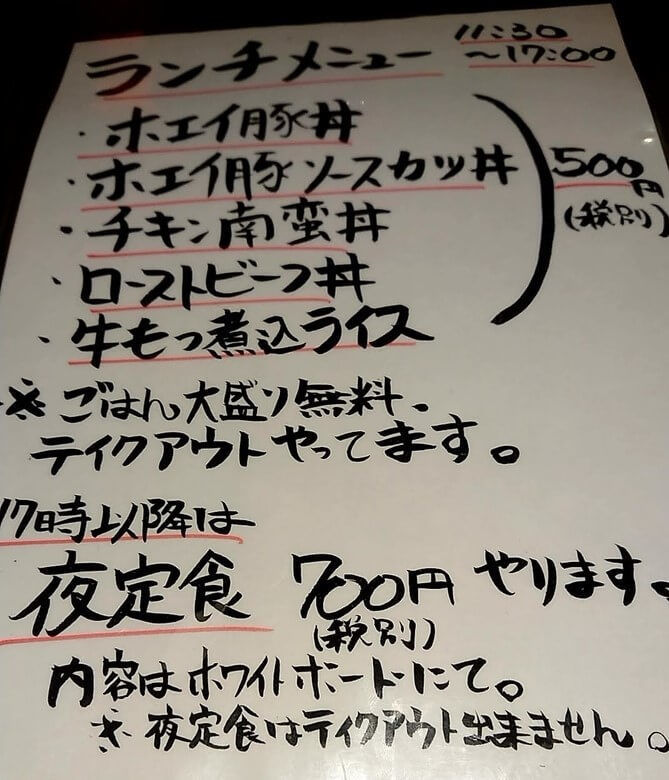 ランチメニュー 11:30
～17:00
・ホエイ豚丼
・ホエイ豚ソースカツ丼 500円
・チキン南蛮丼 (税別)
・ローストビーフ丼
・牛もつ煮込ライス
※ごはん大盛り無料。
テイクアウトやってます。
17時以降は
夜定食 700円 やります。
(税別)
内容はホワイトボードにて。
※夜定食はテイクアウト出来ません。